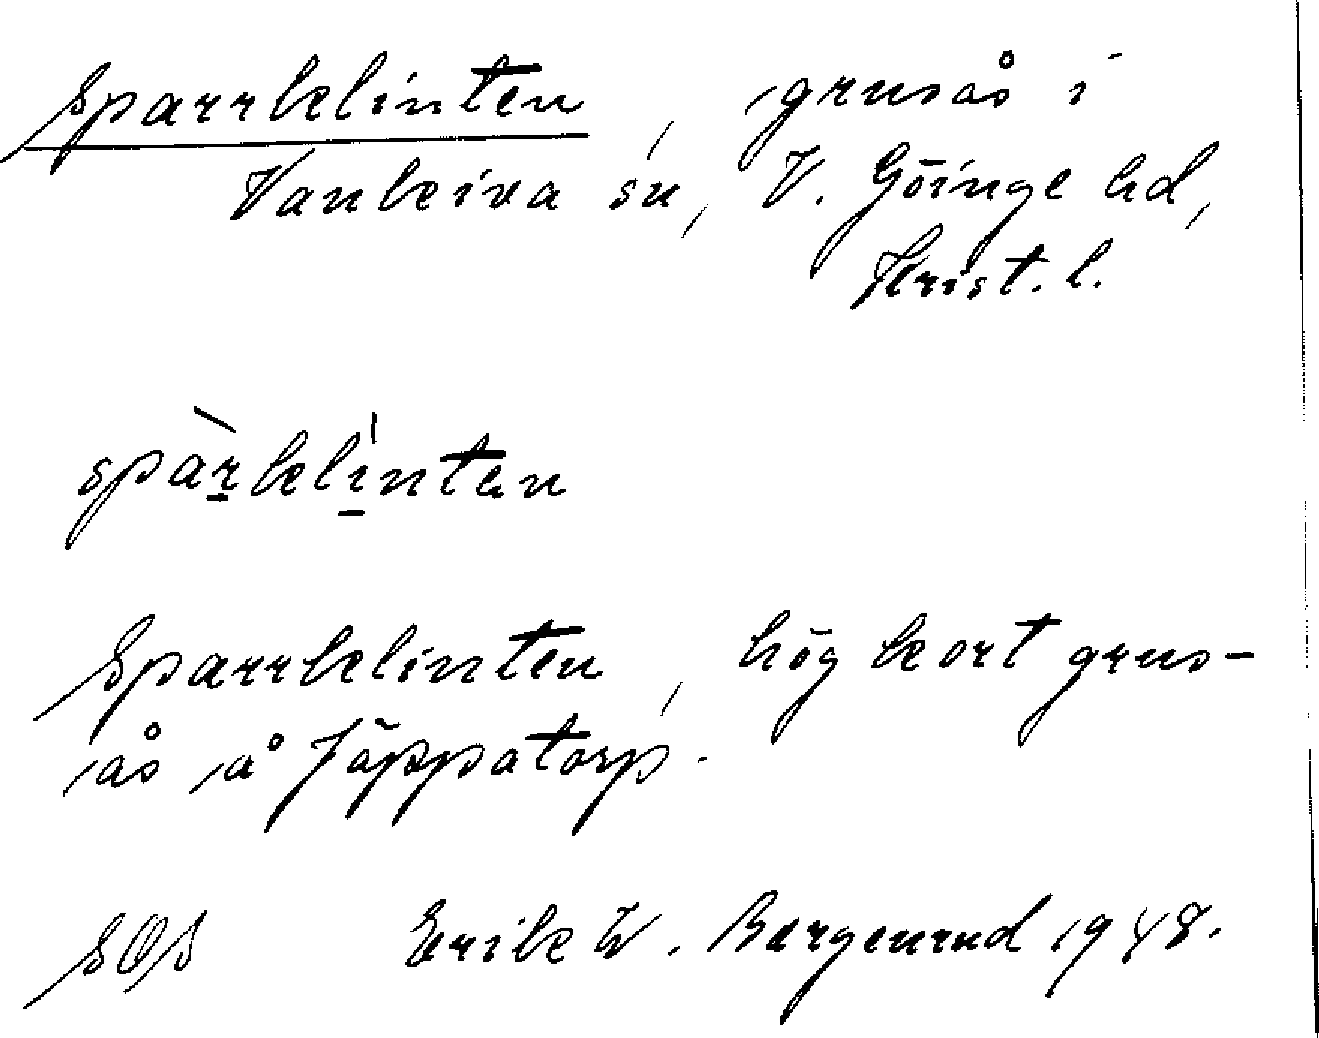 Sparrklinten, grusås i
Vankiva sn, V. Göinge hd,
Krist. l.
spàrklíntən
Sparrklinten, hög kort grus-
ås å Jäppatorp.
SOS Erik W. Bergenrud 1948.